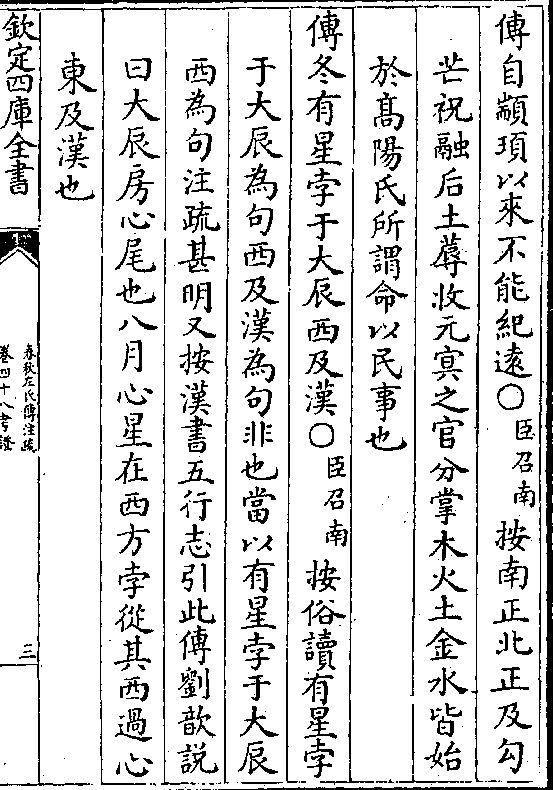 傳自顓頊以來不能紀遠〇臣召南按南正北正及勾
芒祝融后土蓐收元㝠之官分掌木火土金水皆始
於髙陽氏所謂命以民事也
傳冬有星孛于大辰西及漢〇臣召南按俗讀有星孛
于大辰為句西及漢為句非也當以有星孛于大辰
西為句注疏甚明又按漢書五行志引此傳劉歆説
曰大辰房心尾也八月心星在西方孛從其西過心
東及漢也
欽定四庫全書
春秋左氏傳注疏
卷四十八考證
三